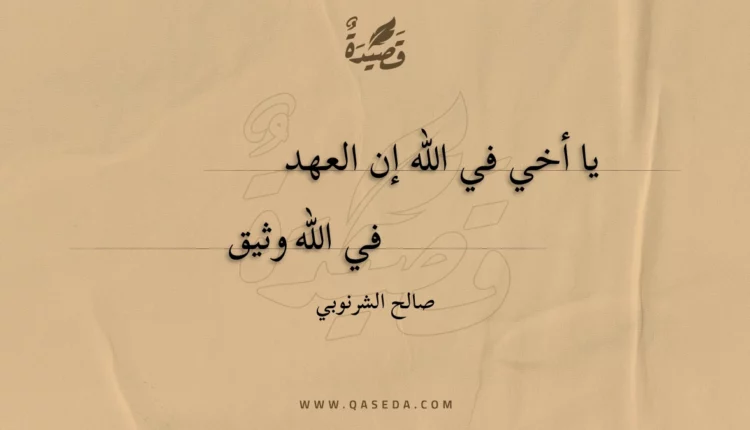 قَصِيدَةٌ
يا أخي في الله إن العهد
في الله وثيق
صالح الشرنوبي
WWW.QASEDA.COM